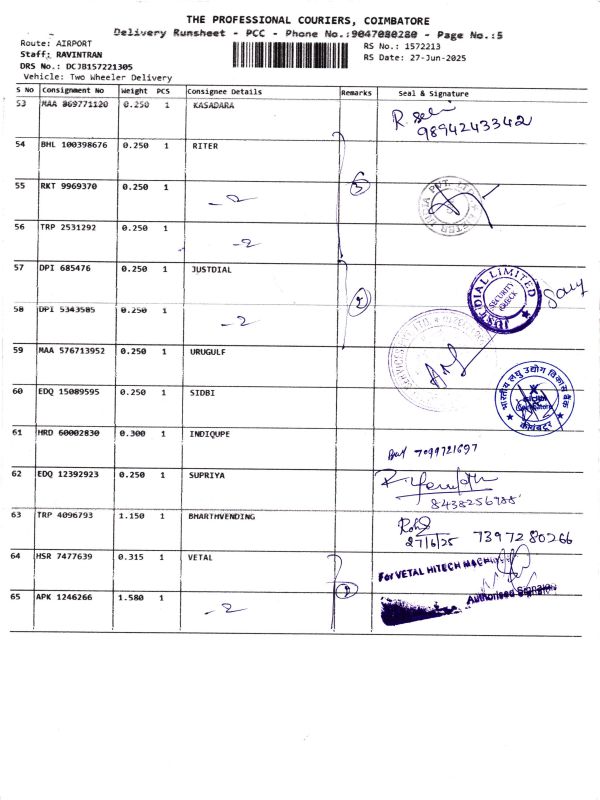 THE PROFESSIONAL COURIERS, COIMBATORE
Delivery Runsheet - PCC - Phone No.:9047080280 - Page No.:5
Route: AIRPORT
RS No.: 1572213
Staff: RAVINTRAN
RS Date: 27-Jun-2025
DRS No.: DCJB157221305
Vehicle: Two Wheeler Delivery
S No Consignment No Weight PCS Consignee Details Remarks Seal & Signature
53 MAA 869771120 0.250 1 KASADARA
9894243342
54 BHL 100398676 0.250 1 RITER
3
55 RKT 9969370 0.250 1 -2
56 TRP 2531292 0.250 1 -2
57 DPI 685476 0.250 1 JUSTDIAL
JUST DIAL LIMITED
SECURITY CHECK
2
58 DPI 5343585 0.250 1 -2
59 MAA 576713952 0.250 1 URUGULF
60 EDQ 15089595 0.250 1 SIDBI
भारतीय लघु उद्योग विकास बैंक
Coimbatore
कोयंबटूर
61 HRD 60002830 0.300 1 INDIQUPE
7099721697
62 EDQ 12392923 0.250 1 SUPRIYA
63 TRP 4096793 1.150 1 BHARTHVENDING
27/6/25 7397280266
64 HSR 7477639 0.315 1 VETAL
For VETAL HITECH
2
65 APK 1246266 1.580 1 -2
Authorised